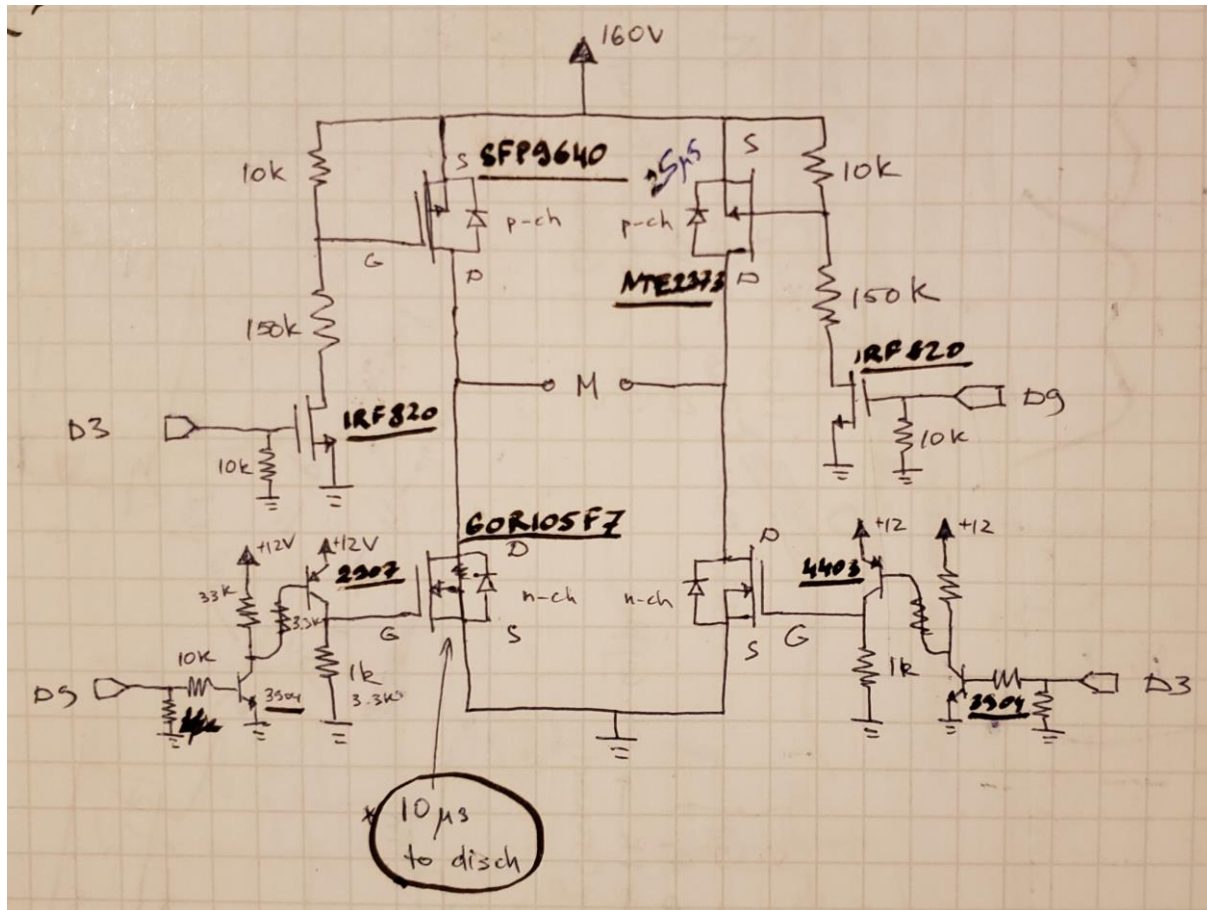 160V
10k
S
SFP9640
25µs
S
10k
p-ch
p-ch
G
D
NTE2373
D
150k
150K
IRF820
M
D3
IRF820
D9
10k
10k
60R105F7
+12V
+12V
2907
D
D
4403
+12
+12
33K
n-ch
n-ch
3.3K
G
S
S
G
10K
1k
3.3K
1k
D9
3904
3904
D3
* 10 µs
to disch